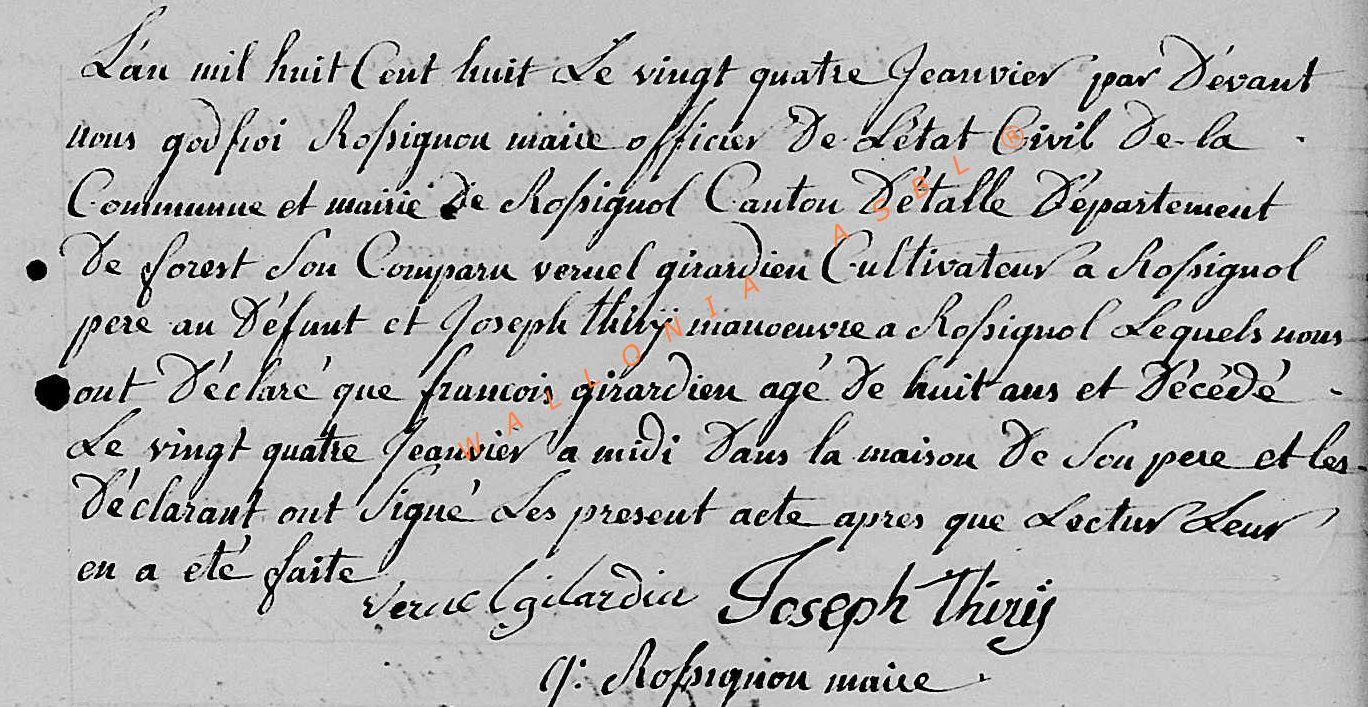 L'an mil huit Cent huit Le vingt quatre Jeanvier par Dévant
nous godfroi Rossignon maire officier De L'état Civil De la
Communne et mairie De Rossignol Canton D'étalle Département
De forest Son Comparu vernel girardien Cultivateur a Rossignol
pere au Défunt et Joseph thiry manoeuvre a Rossignol Lequels nous
ont Déclaré que francois girardien agé De huit ans et Décédé
Le vingt quatre Jeanvier a midi Dans la maison De Son pere et les
Déclarant ont Signé Les present acte apres que Lectur Leur
en a eté faite
vernel gilardin Joseph Thiry
g: Rossignon maire
WALLONIA ASBL ®